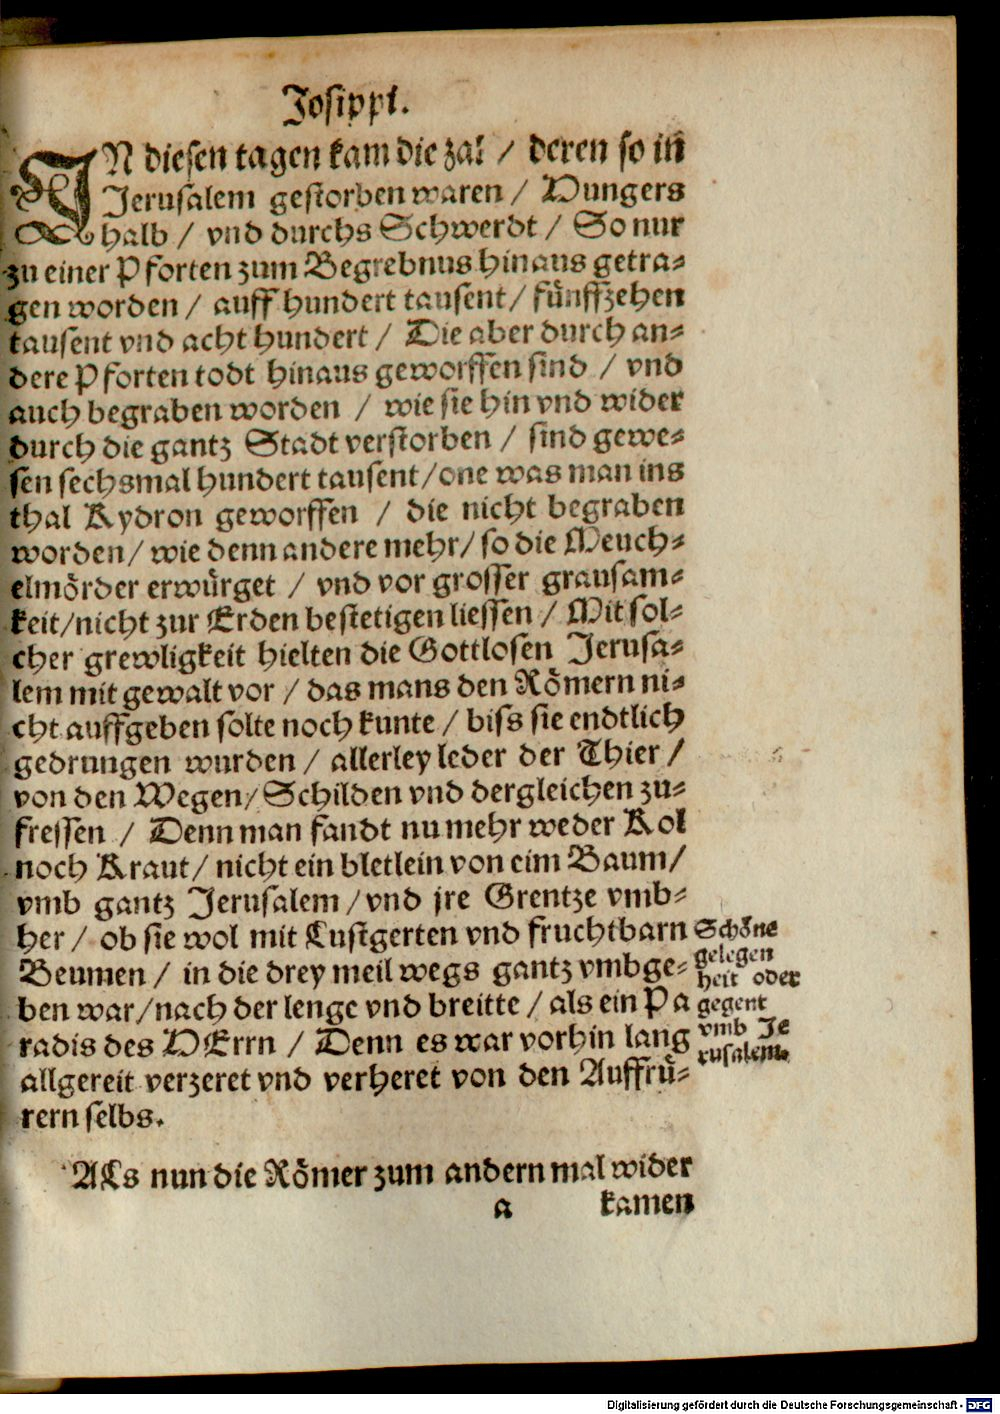 Josippi.
IN diesen tagen kam die zal / deren so in
Jerusalem gestorben waren / Hungers
halb / vnd durchs Schwerdt / So nur
zu einer Pforten zum Begrebnus hinaus getra⸗
gen worden / auff hundert tausent / fünffzehen
tausent vnd acht hundert / Die aber durch an⸗
dere Pforten todt hinaus geworffen sind / vnd
auch begraben worden / wie sie hin vnd wider
durch die gantz Stadt verstorben / sind gewe⸗
sen sechsmal hundert tausent / one was man ins
thal Kydron geworffen / die nicht begraben
worden / wie denn andere mehr / so die Meuch⸗
elmörder erwürget / vnd vor grosser grausam⸗
keit / nicht zur Erden bestetigen liessen / Mit sol⸗
cher grewligkeit hielten die Gottlosen Jerusa⸗
lem mit gewalt vor / das mans den Römern ni⸗
cht auffgeben solte noch kunte / biss sie endtlich
gedrungen wurden / allerley leder der Thier /
von den Wegen / Schilden vnd dergleichen zu⸗
fressen / Denn man fandt nu mehr weder Kol
noch Kraut / nicht ein bletlein von eim Baum /
vmb gantz Jerusalem / vnd jre Grentze vmb⸗
her / ob sie wol mit Lustgerten vnd fruchtbarn
Beumen / in die drey meil wegs gantz vmbge⸗
ben war / nach der lenge vnd breitte / als ein Pa
radis des HErrn / Denn es war vorhin lang
allgereit verzeret vnd verheret von den Auffrü⸗
rern selbs.
Schöne
gelegen
heit oder
gegent
vmb Je
rusalem.
ALs nun die Römer zum andern mal wider
a kamen
Digitalisierung gefördert durch die Deutsche Forschungsgemeinschaft - DFG